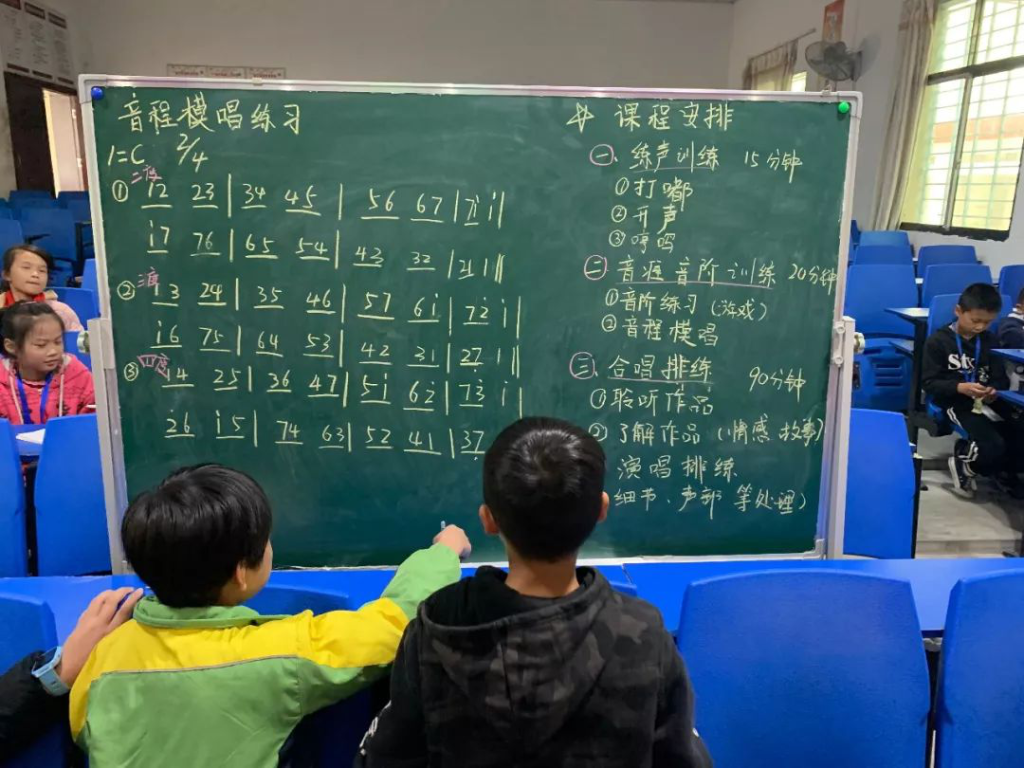 音程模唱练习
1=C 2/4
二度
① 12 23 | 34 45 | 56 67 | 71̇ 1̇ ||
1̇7 76 | 65 54 | 43 32 | 21 1 ||
② 三度 13 24 | 35 46 | 57 61̇ | 72̇ 1̇ |
1̇6 75 | 64 53 | 42 31 | 27̣ 1 ||
③ 四度 14 25 | 36 47 | 51̇ 62̇ | 73̇ 1̇ |
2̇6 1̇5 | 74 63 | 52 41 | 37̣
课程安排
一、练声训练 15分钟
①打嘟
②开声
③哼鸣
二 音准音阶训练 20分钟
①音阶练习(游戏)
②音程模唱
三、合唱排练 90分钟
①聆听作品
②了解作品(情感故事)
演唱排练
细节、声部等处理)